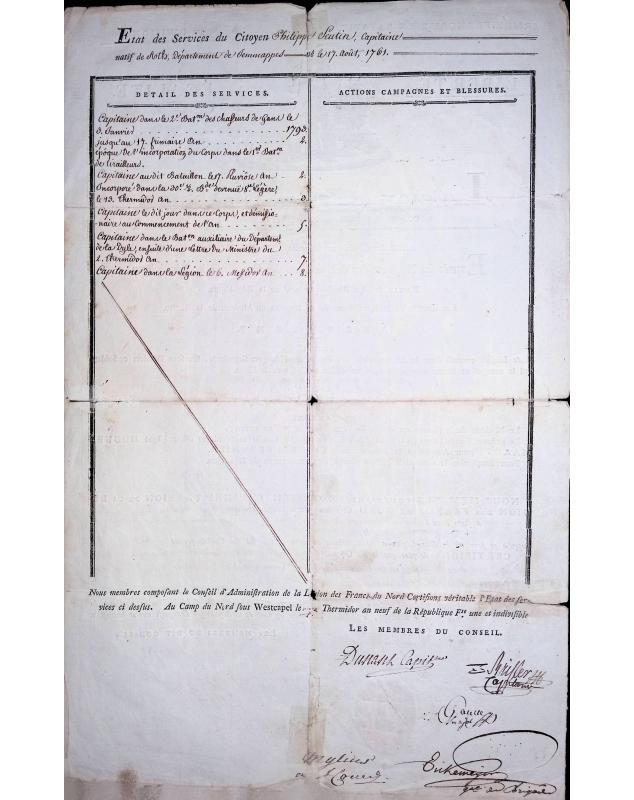 Etat des Services du Citoyen Philippe Scutin, Capitaine
natif de Département de Jemmappes né le 17. Août, 1761.
DETAIL DES SERVICES.
Capitaine dans le 2.e Bat.on des Chasseurs de Gand le
3. Janvier 1793.
jusqu'au 17. frimaire An 2.
époque de l'incorporation du Corps dans le 1.er Bat.on
de tirailleurs.
Capitaine au dit Bataillon le 17. Pluviose An 2.
Incorporé dans la 30.e ½ B.de devenue 8.e Légère,
le 13. Thermidor An 3.
Capitaine le dit jour dans ce Corps, et démissio-
naire au commencement de l'an 5.
Capitaine dans le Bat.on auxiliaire du Départem.t
de la Dyle, ensuite d'une Lettre du Ministre du
2. Thermidor An 7.
Capitaine dans la Légion le 6. Messidor An 8.
ACTIONS CAMPAGNES ET BLÉSSURES.
Nous membres composant le Conseil d'Administration de la Légion des Francs du Nord Certifions véritable l'Etat des ser-
vices ci dessus. Au Camp du Nord sous Westcapel le Thermidor an neuf de la République F.se une et indivisible
LES MEMBRES DU CONSEIL.
Capit.ne
Capitaine
Eickemeyer